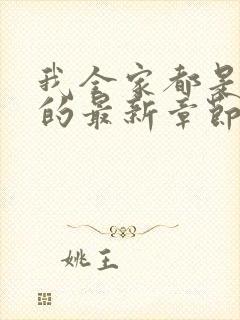 我全家都是
的最新章节
姚王